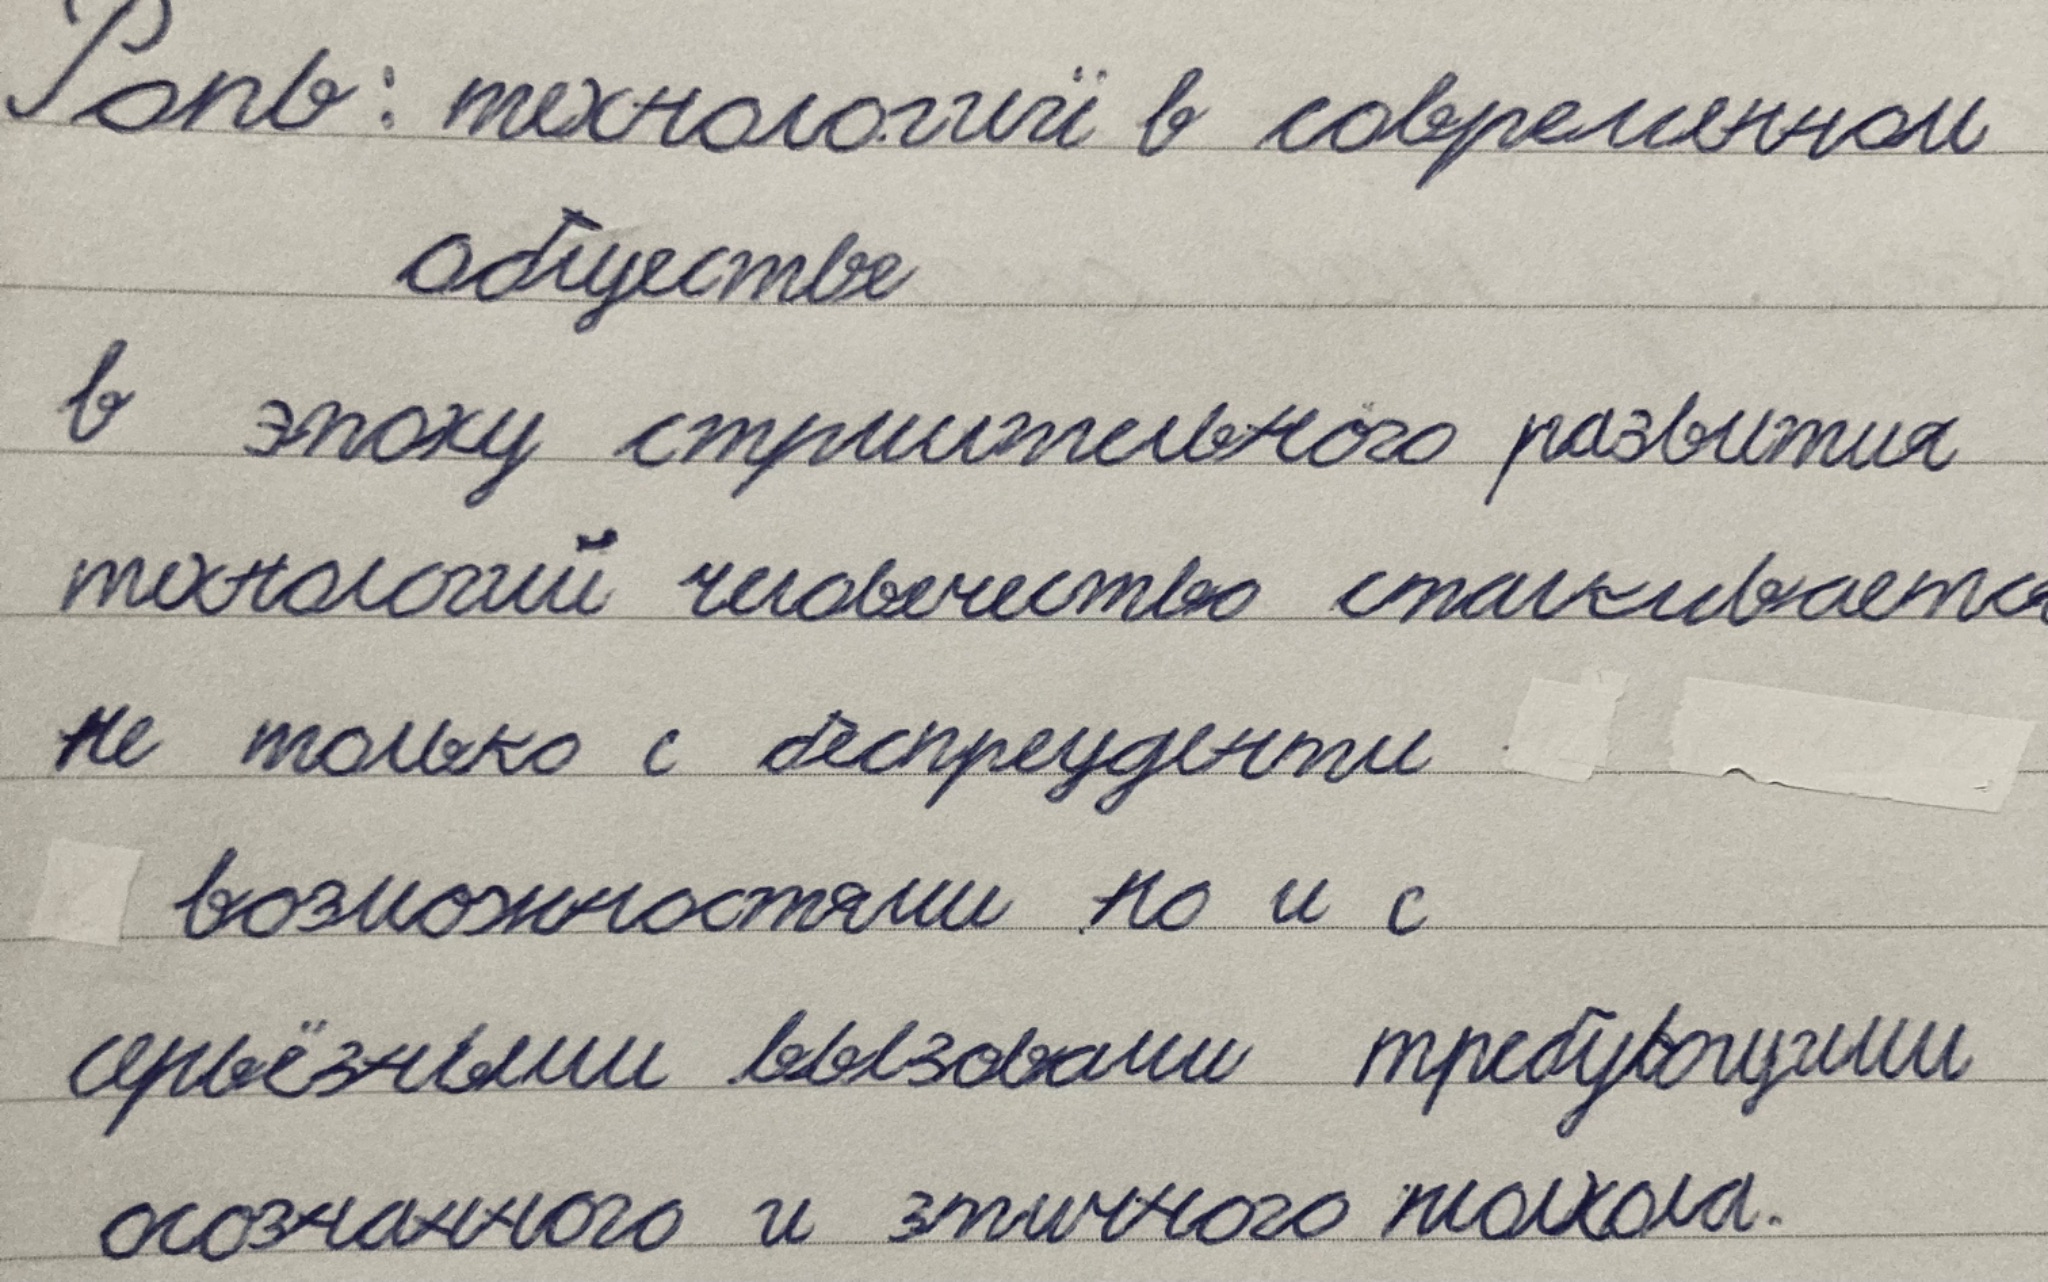 Роль: технологий в современном
обществе
в эпоху стримительного развития
технологий человечество сталкивается
не только с беспрецуденти
возможностями но и с
серьёзными вызовами требующими
осознанного и этичного